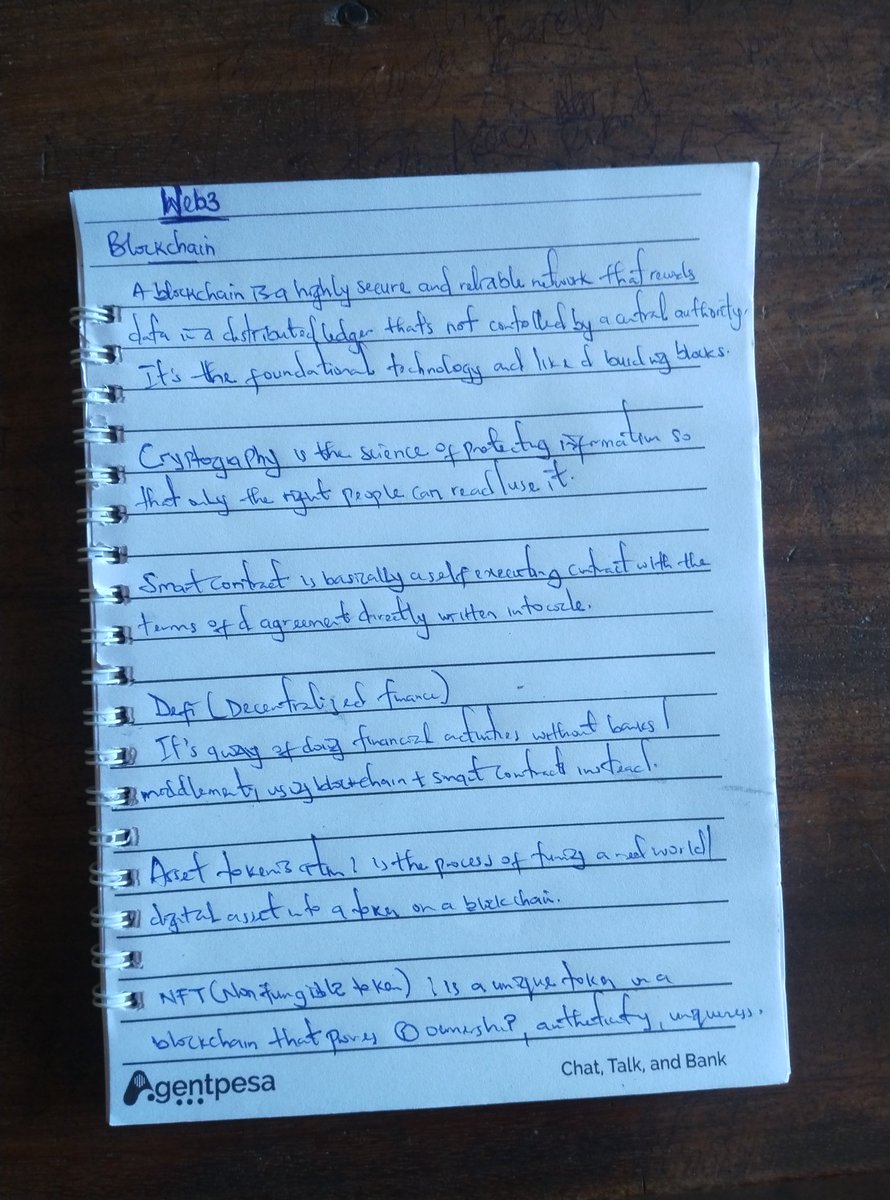 Web3
Blockchain
A blockchain is a highly secure and reliable network that records
data in a distributed ledger that's not controlled by a central authority.
It's the foundational technology and like d building blocks.
Cryptography is the science of protecting information so
that only the right people can read/use it.
Smart contract is basically a self executing contract with the
terms of d agreement directly written into code.
Defi (Decentralized finance)
It's a way of doing financial activities without banks/
middlement, using blockchain + smart contracts instead.
Asset tokenization: is the process of turning a real world/
digital asset into a token on a blockchain.
NFT (Non fungible token): is a unique token on a
blockchain that proves ownership, authenticity, uniqueness.
Agentpesa
Chat, Talk, and Bank